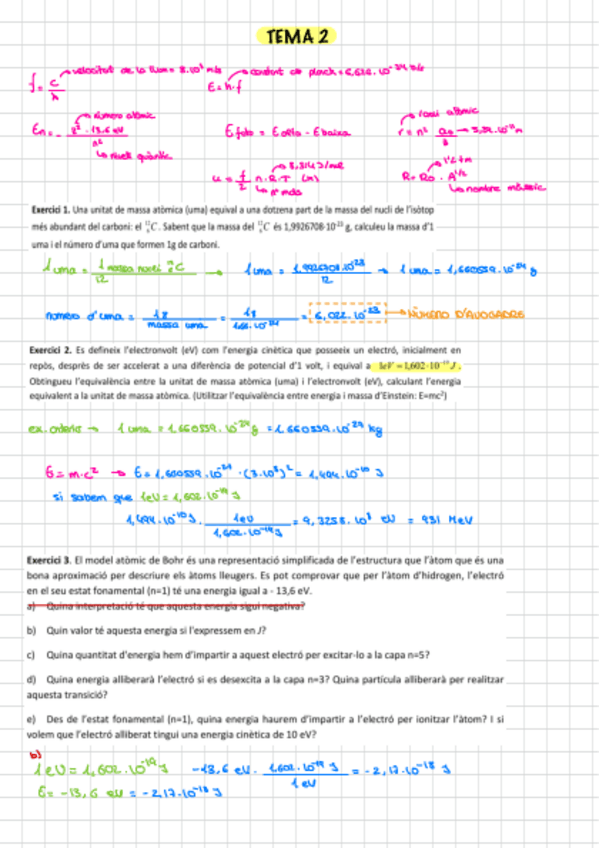 TEMA 2
velocitat de la llum = 3.10⁸ m/s
constant de planck = 6,626.10⁻³⁴ J/s
f = c/λ
E = h·f
número atòmic
radi atòmic
En = - z²·13,6 eV / n²
E foto = E alta - E baixa
r = n² a₀/z → 5,29.10⁻¹¹ m
nivell quàntic
8,314 J/mol
1'2 fm
u = f/2 n.R.T (J)
nº mols
R = R₀ · A^1/3
nombre màssic
Exercici 1. Una unitat de massa atòmica (uma) equival a una dotzena part de la massa del nucli de l'isòtop
més abundant del carboni: el ¹²₆C. Sabent que la massa del ¹²₆C és 1,9926708·10⁻²³ g, calculeu la massa d'1
uma i el número d'uma que formen 1g de carboni.
1 uma = 1 massa nucli ¹²₆C / 12 → 1 uma = 1,9926708.10⁻²³ / 12 → 1 uma = 1,660559.10⁻²⁴ g
número d'uma = 1g / massa uma = 1g / 1,66.10⁻²⁴ = 6,022.10²³ → NÚMERO D'AVOGADRE
Exercici 2. Es defineix l'electronvolt (eV) com l'energia cinètica que posseeix un electró, inicialment en
repòs, després de ser accelerat a una diferència de potencial d'1 volt, i equival a 1eV = 1,602·10⁻¹⁹ J.
Obtingueu l'equivalència entre la unitat de massa atòmica (uma) i l'electronvolt (eV), calculant l'energia
equivalent a la unitat de massa atòmica. (Utilitzar l'equivalència entre energia i massa d'Einstein: E=mc²)
ex. anterior → 1 uma = 1,660559.10⁻²⁴ g = 1,660559.10⁻²⁷ kg
E = m·c² → E = 1,660559.10⁻²⁷ · (3.10⁸)² = 1,494.10⁻¹⁰ J
si sabem que 1eV = 1,602.10⁻¹⁹ J
1,494.10⁻¹⁰ J. 1 eV / 1,602.10⁻¹⁹ J = 9,3258.10⁸ eV = 931 MeV
Exercici 3. El model atòmic de Bohr és una representació simplificada de l'estructura que l'àtom que és una
bona aproximació per descriure els àtoms lleugers. Es pot comprovar que per l'àtom d'hidrogen, l'electró
en el seu estat fonamental (n=1) té una energia igual a - 13,6 eV.
a) Quina interpretació té que aquesta energia sigui negativa?
b) Quin valor té aquesta energia si l'expressem en J?
c) Quina quantitat d'energia hem d'impartir a aquest electró per excitar-lo a la capa n=5?
d) Quina energia alliberarà l'electró si es desexcita a la capa n=3? Quina partícula alliberarà per realitzar
aquesta transició?
e) Des de l'estat fonamental (n=1), quina energia haurem d'impartir a l'electró per ionitzar l'àtom? I si
volem que l'electró alliberat tingui una energia cinètica de 10 eV?
b)
1 eV = 1,602.10⁻¹⁹ J -13,6 eV. 1,602.10⁻¹⁹ J / 1 eV = -2,17.10⁻¹⁸ J
E = -13,6 eV = -2,17.10⁻¹⁸ J